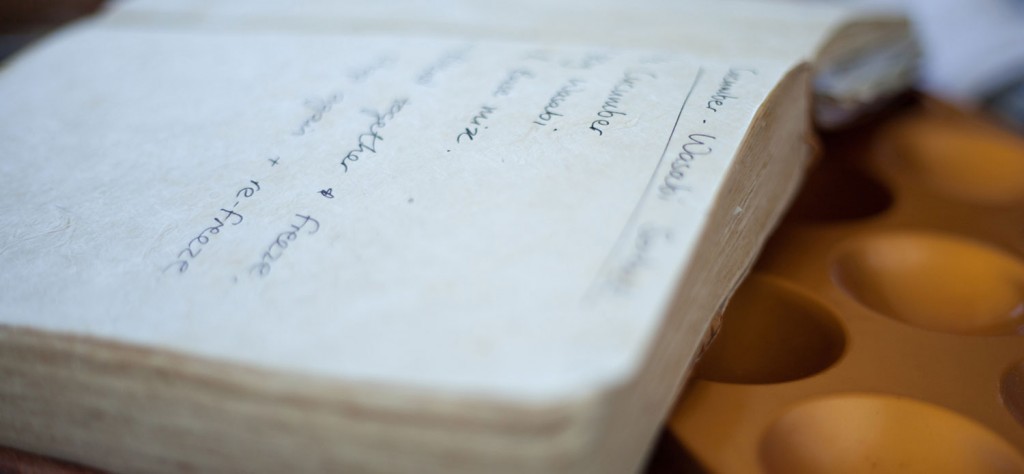 Cucumber - Wasabi Sorbet
Cucumber
Wasabi
base mix.
together & freeze
again + re-freeze